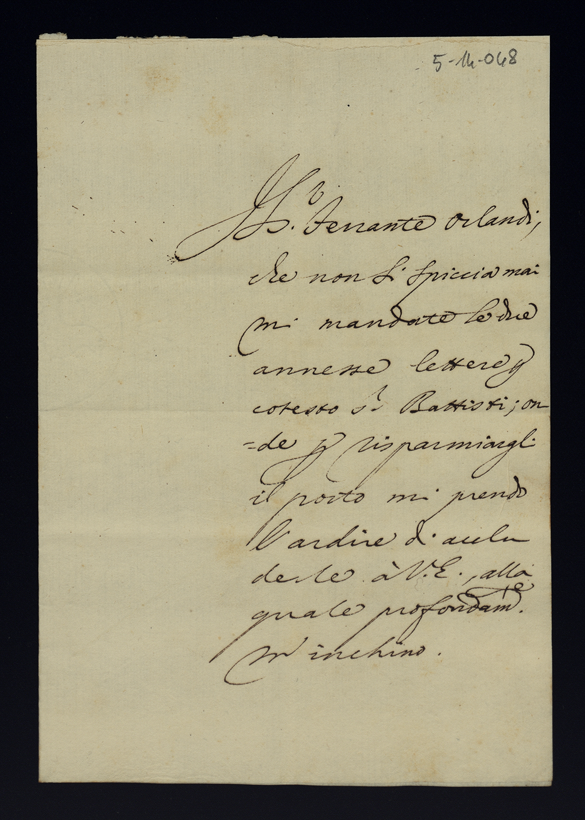 5-14-068
Il Sr. Ferrante Orlandi,
che non si spiccia mai
mi mandate le due
annesse lettere p
cotesto Sr Battisti; on
=de p risparmiargli
il porto mi prendo
l'ardire di acclu
derle à V. E., alla
quale profondamte.
m'inchino.